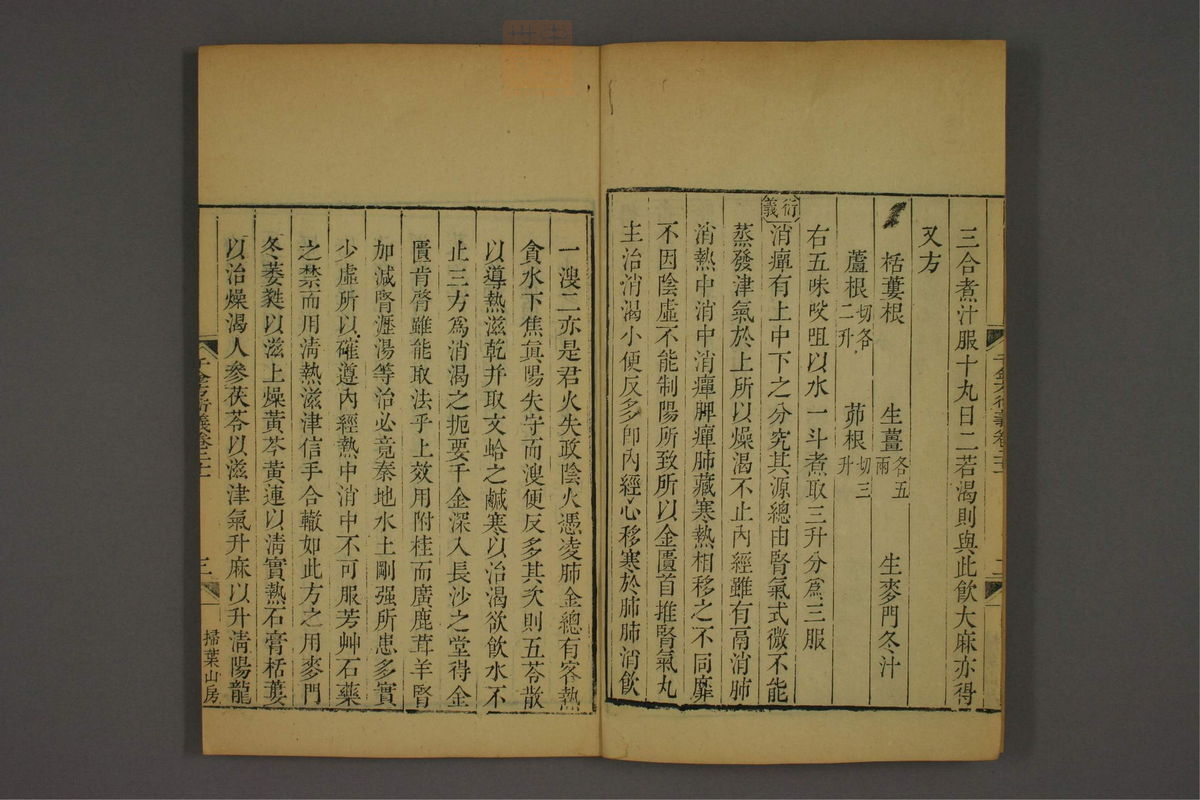 三合煮汁服十丸日二若渴則與此飲大麻亦得
又方
栝蔞根 生薑各五兩 生麥門冬汁
蘆根切各二升 茆根切三升
右五味㕮咀以水一斗煮取三升分爲三服
衍義
消癉有上中下之分究其源總由腎氣式微不能
蒸發津氣於上所以燥渴不止內經雖有鬲消肺
消熱中消中消癉脾癉肺藏寒熱相移之不同靡
不因陰虛不能制陽所致所以金匱首推腎氣丸
主治消渴小便反多卽內經心移寒於肺肺消飲
一溲二亦是君火失政陰火憑凌肺金總有客熱
貪水下焦眞陽失守而溲便反多其次則五苓散
以導熱滋乾并取文蛤之鹹寒以治渴欲飲水不
止三方爲消渴之扼要千金深入長沙之堂得金
匱肯綮雖能取法乎上效用附桂而廣鹿茸羊腎
加減腎瀝湯等治必竟秦地水土剛强所患多實
少虛所以確遵內經熱中消中不可服芳艸石藥
之禁而用淸熱滋津信手合轍如此方之用麥門
冬萎蕤以滋上燥黃芩黃連以淸實熱石膏栝蔞
以治燥渴人參茯苓以滋津氣升麻以升淸陽龍
千金方衍義卷二十一
三
掃葉山房